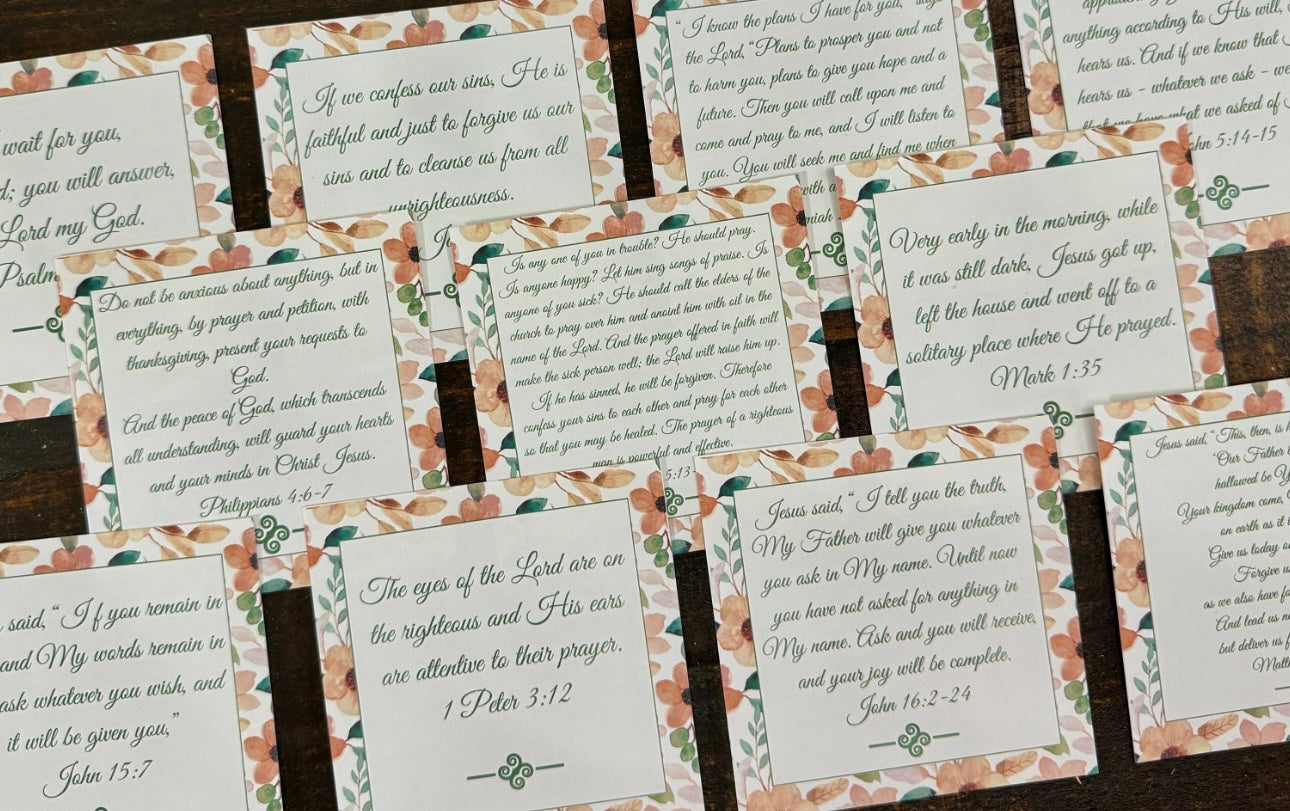 wait for you,
you will answer,
Lord my God.
Psalm
If we confess our sins, He is
faithful and just to forgive us our
sins and to cleanse us from all
unrighteousness.
" I know the plans I have for you," says
the Lord, "Plans to prosper you and not
to harm you, plans to give you hope and a
future. Then you will call upon me and
come and pray to me, and I will listen to
you. You will seek me and find me when
with a
anything according to His will,
hears us. And if we know that
hears us - whatever we ask - we
that we have what we asked of
5:14-15
Do not be anxious about anything, but in
everything, by prayer and petition, with
thanksgiving, present your requests to
God.
And the peace of God, which transcends
all understanding, will guard your hearts
and your minds in Christ Jesus.
Philippians 4:6-7
Is any one of you in trouble? He should pray.
Is anyone happy? Let him sing songs of praise. Is
anyone of you sick? He should call the elders of the
church to pray over him and anoint him with oil in the
name of the Lord. And the prayer offered in faith will
make the sick person well; the Lord will raise him up.
If he has sinned, he will be forgiven. Therefore
confess your sins to each other and pray for each other
so that you may be healed. The prayer of a righteous
man is powerful and effective.
5:13-
Very early in the morning, while
it was still dark, Jesus got up,
left the house and went off to a
solitary place where He prayed.
Mark 1:35
said, " If you remain in
and My words remain in
ask whatever you wish, and
it will be given you,"
John 15:7
The eyes of the Lord are on
the righteous and His ears
are attentive to their prayer.
1 Peter 3:12
Jesus said, " I tell you the truth,
My Father will give you whatever
you ask in My name. Until now
you have not asked for anything in
My name. Ask and you will receive,
and your joy will be complete.
John 16:2-24
Jesus said, " This, then, is
'Our Father
hallowed be
Your kingdom come,
on earth as it
Give us today
Forgive
as we also have
And lead us
but deliver us